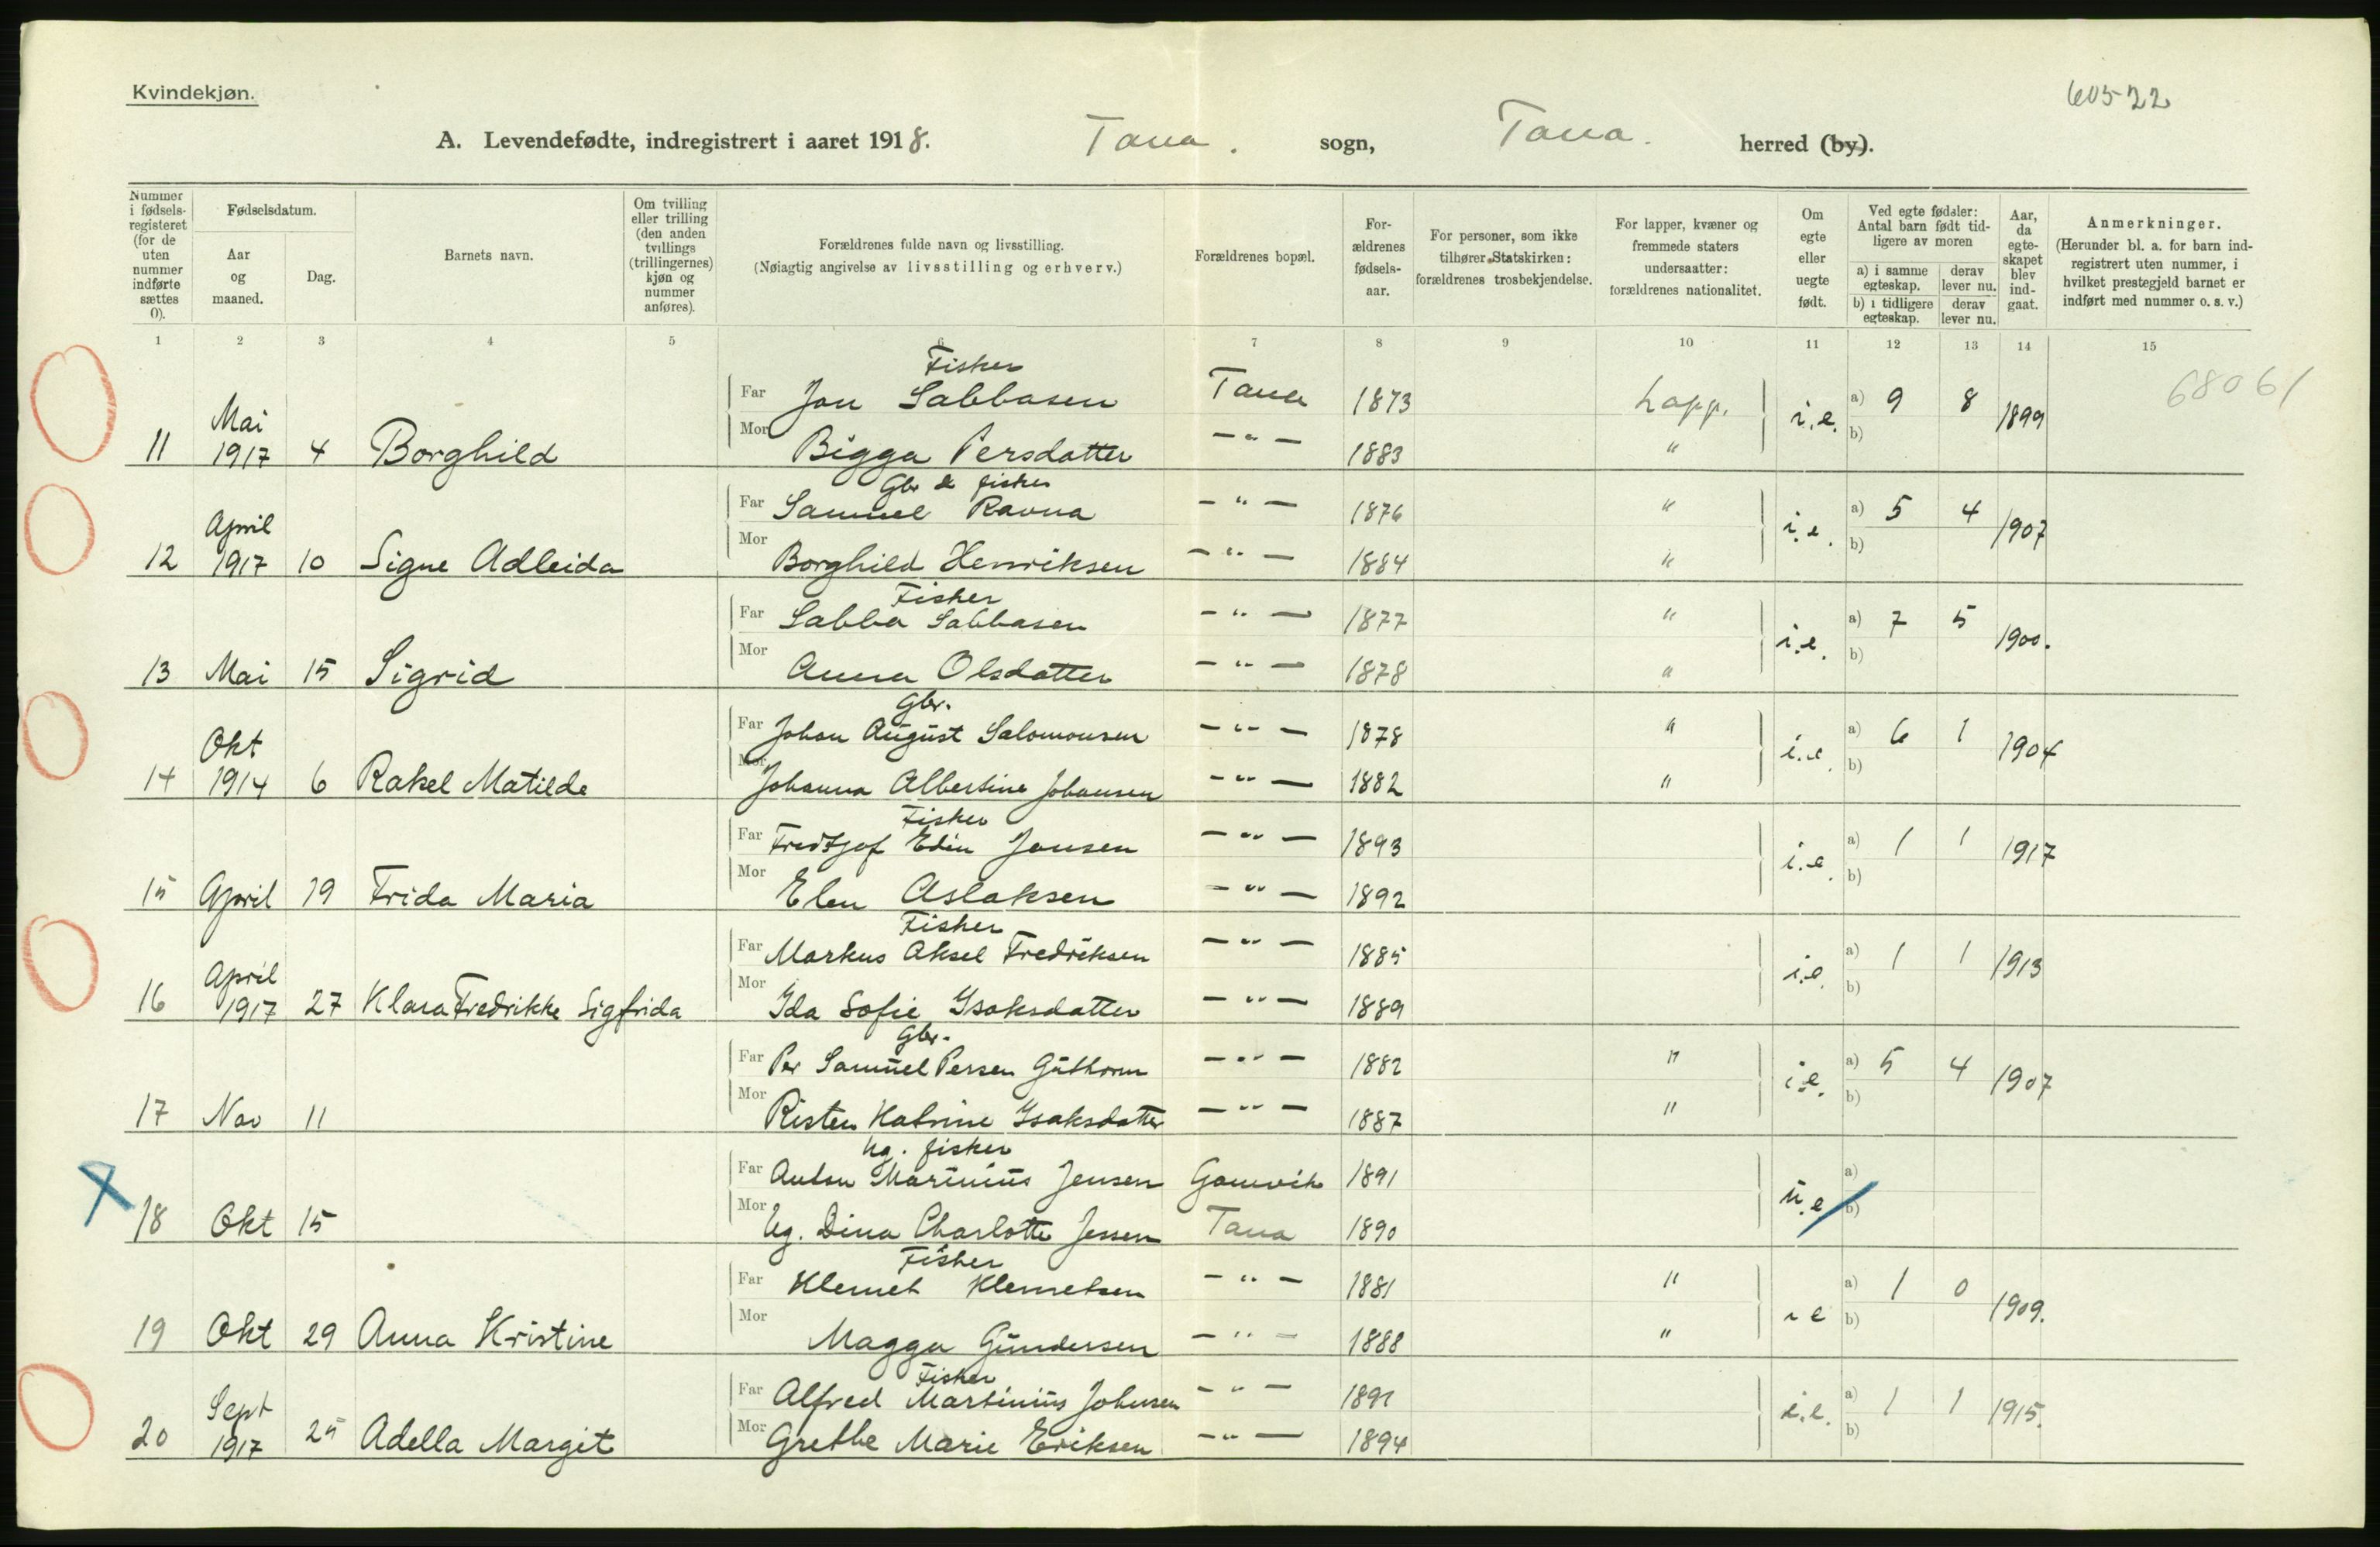 Kvindekjøn.
60522
A. Levendefødte, indregistrert i aaret 1918. Tana. sogn, Tana. herred (by).
Nummer i fødselsregisteret (for de uten nummer indførte sættes 0).
Fødselsdatum.
Aar og maaned.
Dag.
Barnets navn.
Om tvilling eller trilling (den anden tvillings (trillingernes) kjøn og nummer anføres).
Forældrenes fulde navn og livsstilling.
(Nøiagtig angivelse av livsstilling og erhverv.)
Forældrenes bopæl.
Forældrenes fødselsaar.
For personer, som ikke tilhører Statskirken: forældrenes trosbekjendelse.
For lapper, kvæner og fremmede staters undersaatter: forældrenes nationalitet.
Om egte eller uegte født.
Ved egte fødsler: Antal barn født tidligere av moren
a) i samme egteskap.
derav lever nu.
b) i tidligere egteskap.
derav lever nu.
Aar, da egteskapet blev indgaat.
Anmerkninger.
(Herunder bl. a. for barn indregistrert uten nummer, i hvilket prestegjeld barnet er indført med nummer o. s. v.)
1 2 3 4 5 6 7 8 9 10 11 12 13 14 15
Fisker
Far Jon Sabbasen Tana 1873 Lapp. i.e. a) 9 8 1899 68061
11 Mai 1917 4 Borghild Mor Bigga Persdatter — " — 1883 " b)
Gbr & fisker
Far Samuel Ravna — " — 1876 " i.e. a) 5 4 1907
12 April 1917 10 Signe Adleida Mor Borghild Henriksen — " — 1884 " b)
Fisker
Far Sabba Sabbasen — " — 1877 " i.e. a) 7 5 1900.
13 Mai 15 Sigrid Mor Anna Olsdatter — " — 1878 " b)
Gbr.
Far Johan August Salomonsen — " — 1878 " i.e. a) 6 1 1904
14 Okt 1914 6 Rakel Matilde Mor Johanna Albertine Johansen — " — 1882 " b)
Fisker
Far Fredtjof Edin Jansen — " — 1893 i.e. a) 1 1 1917
15 April 19 Frida Maria Mor Elen Aslaksen — " — 1892 b)
Fisker
Far Markus Aksel Fredriksen — " — 1885 i.e. a) 1 1 1913
16 April 1917 27 Klara Fredrikke Sigfrida Mor Ida Sofie Isaksdatter — " — 1889 b)
Gbr.
Far Per Samuel Persen Guthorm — " — 1882 " i.e. a) 5 4 1907
17 Nov 11 Mor Risten Katrine Isaksdatter — " — 1887 " b)
Ug. fisker
Far Anton Marinius Jensen Gamvik 1891 u.e a)
18 Okt 15 Mor Ug. Dina Charlotte Jessen Tana 1890 b)
Fisker
Far Klemet Klemetsen — " — 1881 " i e a) 1 0 1909.
19 Okt 29 Anna Kristine Mor Magga Gundersen — " — 1888 " b)
Fisker
Far Alfred Martinius Johnsen — " — 1891 i.e. a) 1 1 1915.
20 Sept 1917 25 Adella Margit Mor Grethe Marie Eriksen — " — 1894 b)